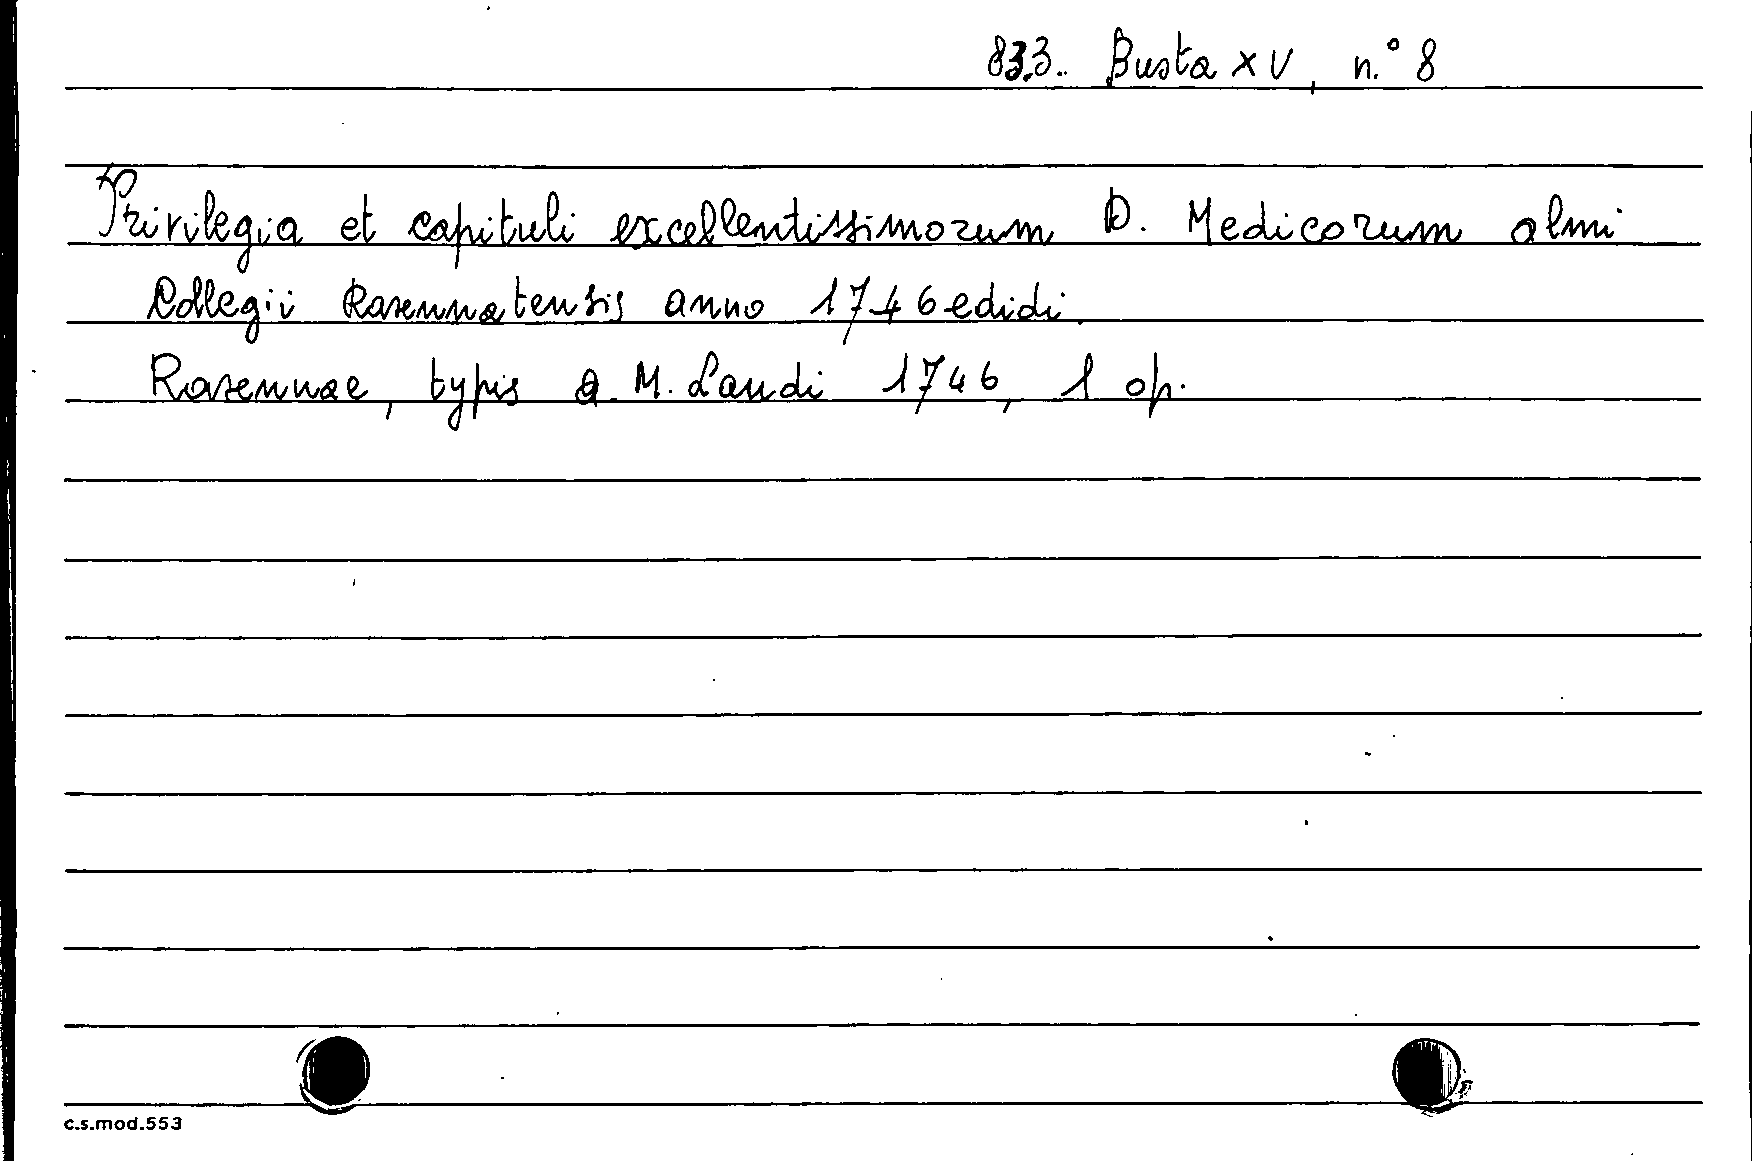 833. Busta XV, n.° 8
Privilegia et capituli excellentissimorum D. Medicorum almi
Collegii Ravennatensis anno 1746 edidi.
Ravennae, typis A. M. Landi 1746, 1 op.
c.s.mod.553